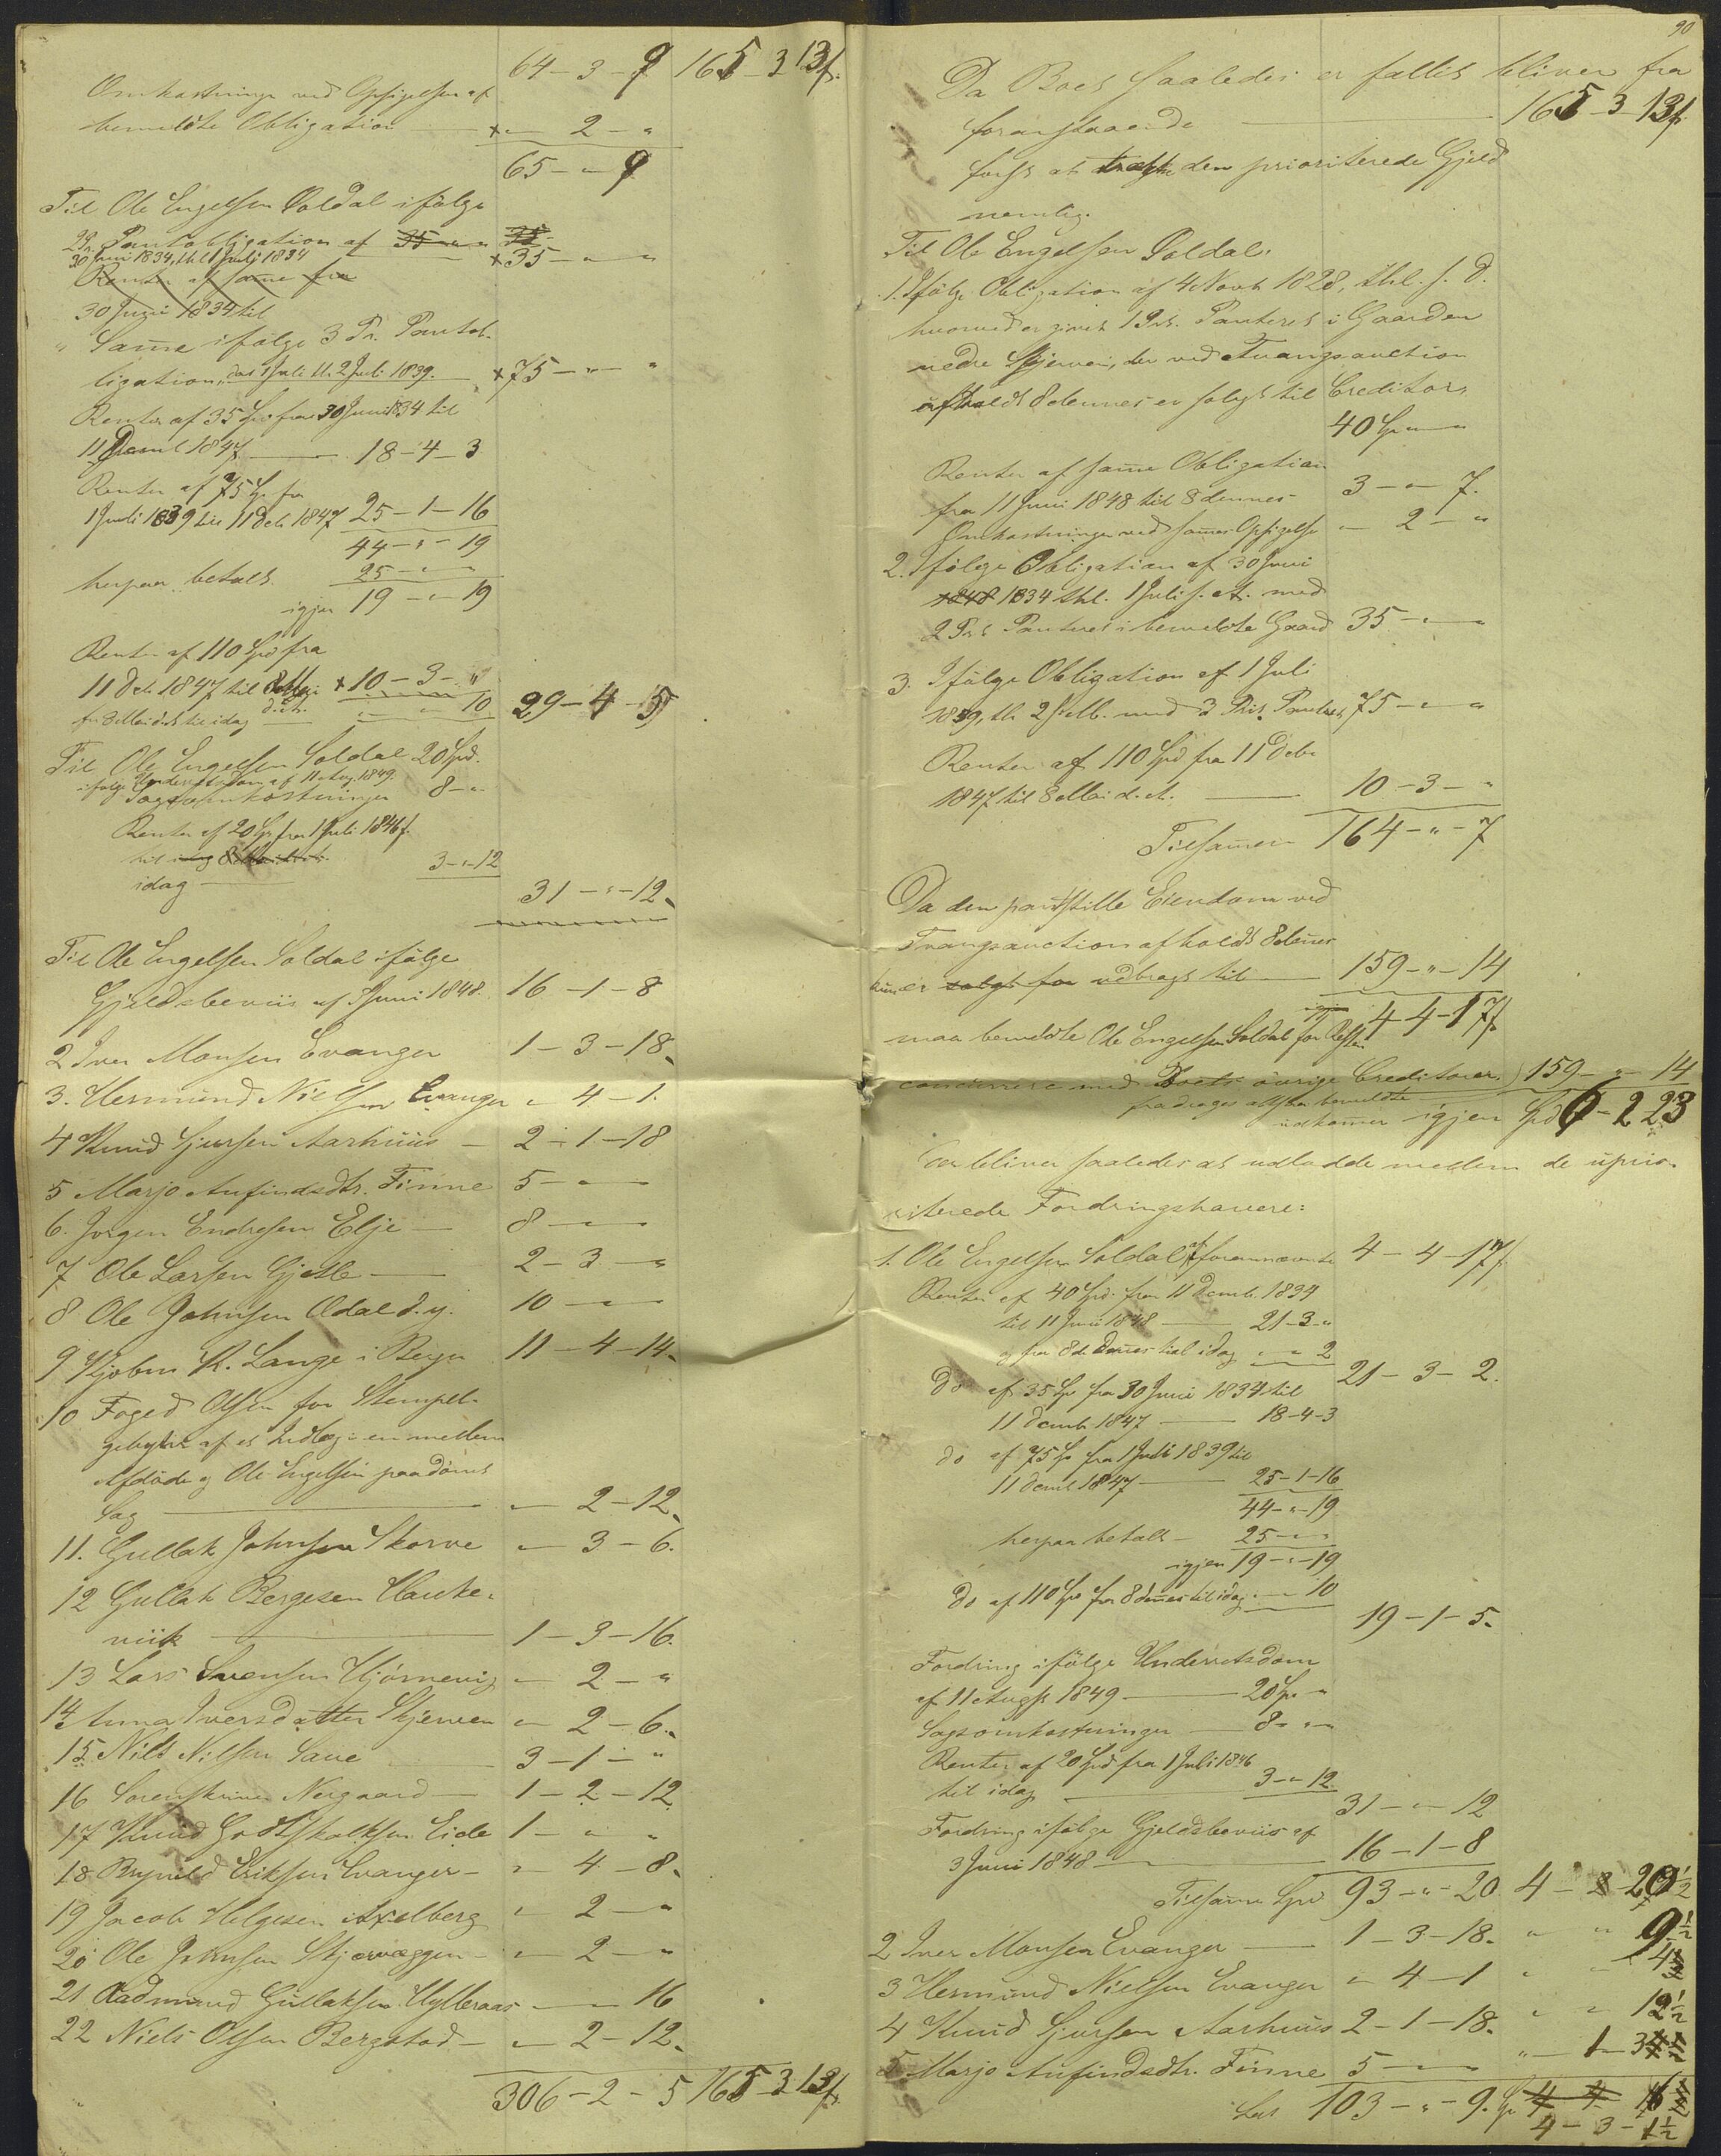 64 - 3 - 9 165 - 3 13 f.
Omkostninger ved Opsigelsen af
bemeldte Obligation × " 2 - "
65 - " 9
Til Ole Engelsen Soldal ifølge
2 Pr. Pantobligation af 35 " "
30 Juni 1834, thl. 1 Juli 1834 × 35 - " - "
Renter af same fra
30 Juni 1834 til
" Same ifølge 3 Pr. Pantob-
ligation, dat 1 Juli tl. 2 Juli 1839. × 75 - " - "
Renter af 35 Spd fra 30 Juni 1834 til
11 Decmb 1847 18 - 4 - 3
Renter af 75 Sp. fra
1 Juli 1839 til 11 Decb 1847 25 - 1 - 16
44 - " - 19
herpaa betalt 25 - " - "
igjen 19 - " - 19
Renter af 110 Spd fra
11 Decb 1847 til 8 Mai × 10 - 3 - "
d. A.
fra 8 Mai d. A. til idag " - " 10 29 - 4 - 5
Til Ole Engelsen Soldal 20 Spd.
ifølge Underretsdom af 11 Aug. 1849.
Sagsomkostninger 8 - " -
Renter af 20 Sp. fra 1 Juli 1846 f.
til idag 8 Mai d. A.
idag 3 - " - 12
31 - " - 12.
Til Ole Engelsen Soldal ifølge
Gjeldsbeviis af 3 Juni 1848. 16 - 1 - 8
2 Iver Monsen Evanger 1 - 3 - 18.
3. Hermund Nielsen Evanger " - 4 - 1.
4 Knud Sjursen Aarhuus 2 - 1 - 18
5 Marjo Anfindsdtr. Finne 5 - " -
6. Jørgen Endresen Elje 8 - " -
7 Ole Larsen Gjelle 2 - 3 - "
8 Ole Johnsen Oldal d. y. 10 - " -
9 Kjøbm K. Lange i Bergn 11 - 4 - 14.
10 Foged Olsen for Stempel-
gebyhr af et Indlæg i en mellem
Afdøde og Ole Engelsen paadømt
Sag " - 2 - 12.
11. Gullak Johnsen Skorve " - 3 - 6.
12 Gullak Bergesen Hauke-
viik 1 - 3 - 16.
13 Lars Svensen Hjørnevig " - 2 - "
14 Anna Iversdatter Skjerven " - 2 - 6.
15 Nils Nilsen Saue 3 - 1 - "
16 Sorenskriver Nergaard 1 - 2 - 12
17 Knud Godtskalksen Eide 1 - " - "
18 Brynild Eriksen Evanger " - 4 - 8.
19 Jacob Helgesen Axelberg " - 2 - "
20 Ole Johnsen Skjervæggen " - 2 - "
21 Aadmund Gullaksen Hylleraas " - " 16
22 Niels Olsen Bergstad " - 2 - 12.
306 - 2 - 5 165 - 3 13 f.
90
Da Boet saaledes er falles bliver fra
foranstaaende 165 - 3 - 13 f.
først at trække den prioriterede Gjeld
nemlig.
Til Ole Engelsen Soldal.
1. Ifølge Obligation af 4 Novb 1828, thl. s. D.
hvorved er givet 1 Prt. Panteret i Gaarden
nedre Skjerven, der ved Tvangsauction
afholdt 8 dennes er solgt til Creditor,
40 Sp " - "
Renter af same Obligation
fra 11 Juni 1848 til 8 dennes 3 - " - 7.
Omkostninger ved sammes Opsigelse " - 2 - "
2. Ifølge Obligation af 30 Juni
1848 1834 thl. 1 Juli s. A. med
2 Prt Panteret i bemeldte Gaard 35 - " - "
3. Ifølge Obligation af 1 Juli
1839, tl. 2 s. M. med 3 Prt. Panteret 75 - " - "
Renter af 110 Spd fra 11 Decbr
1847 til 8 Mai d. A. 10 - 3 - "
Tilsamen 164 - " - 7
Da den pantstillte Eiendom ved
Tvangsauction afholdt 8 denes
kun er solgt for udbragt til 159 - " - 14
igjen 4 - 4 - 17 f.
maa bemeldte Ole Engelsen Soldal for Resten
concurrere med Boets øvrige Creditorer. 159 - " - 14
fradrages altsaa bemeldte
udkommer igjen Spd 6 - 2 23
der bliver saaledes at udlodde mellem de uprio-
riterede Fordringshavere:
1. Ole Engelsen Soldal af forannævnte 4 - 4 - 17 f.
Renter af 40 Spd. fra 11 Decmb. 1834
til 11 Juni 1848 21 - 3 - "
og fra 8 de dennes til idag " - " 2 21 - 3 - 2.
do af 35 Sp fra 30 Juni 1834 til
11 decmb 1847 18 - 4 - 3
do af 75 Sp fra 1 Juli 1839 til
11 decmb 1847 25 - 1 - 16
44 - " - 19
herpaa betalt 25 - " -
igjen 19 - " - 19
do af 110 Spd fra 8 denes til idag " - 10
19 - 1 - 5.
Fordring ifølge Underretsdom
af 11 Augst 1849 20 Sp. - "
Sagsomkostninger 8 - " -
Renter af 20 Spd fra 1 Juli 1846
til idag 3 - " 12
31 - " - 12
Fordring ifølge Gjeldsbeviis af
3 Juni 1848 16 - 1 - 8
Tilsamen Spd 93 - " - 20. 4 - 20 ½
2 Iver Monsen Evanger 1 - 3 - 18. " " 9 ½
3 Hermund Nielsen Evanger " - 4 - 1 " - 4
4 Knud Sjursen Aarhuus 2 - 1 - 18. " " 12 ½
5 Marjo Anfindsdtr. Finne 5 - " - " " - 1 - 3
Lat 103 - " - 9. Sp 4 4
4 - 3 - 1 ½